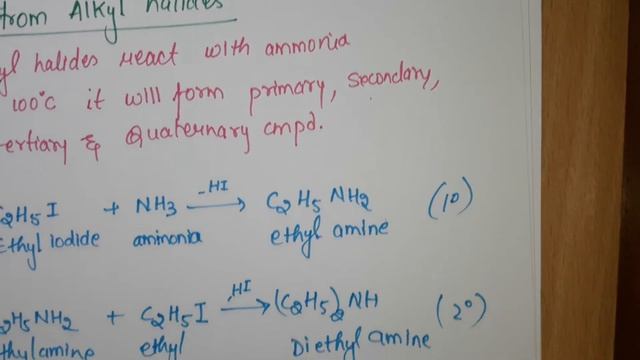 from Alkyl halides
yl halides react with ammonia
100°c it will form primary, secondary,
ertiary & Quaternary cmpd.
2H5I + NH3 -HI → C2H5NH2 (1°)
Ethyl iodide ammonia ethyl amine
2H5NH2 + C2H5I -HI → (C2H5)2NH (2°)
thylamine ethyl Diethyl amine